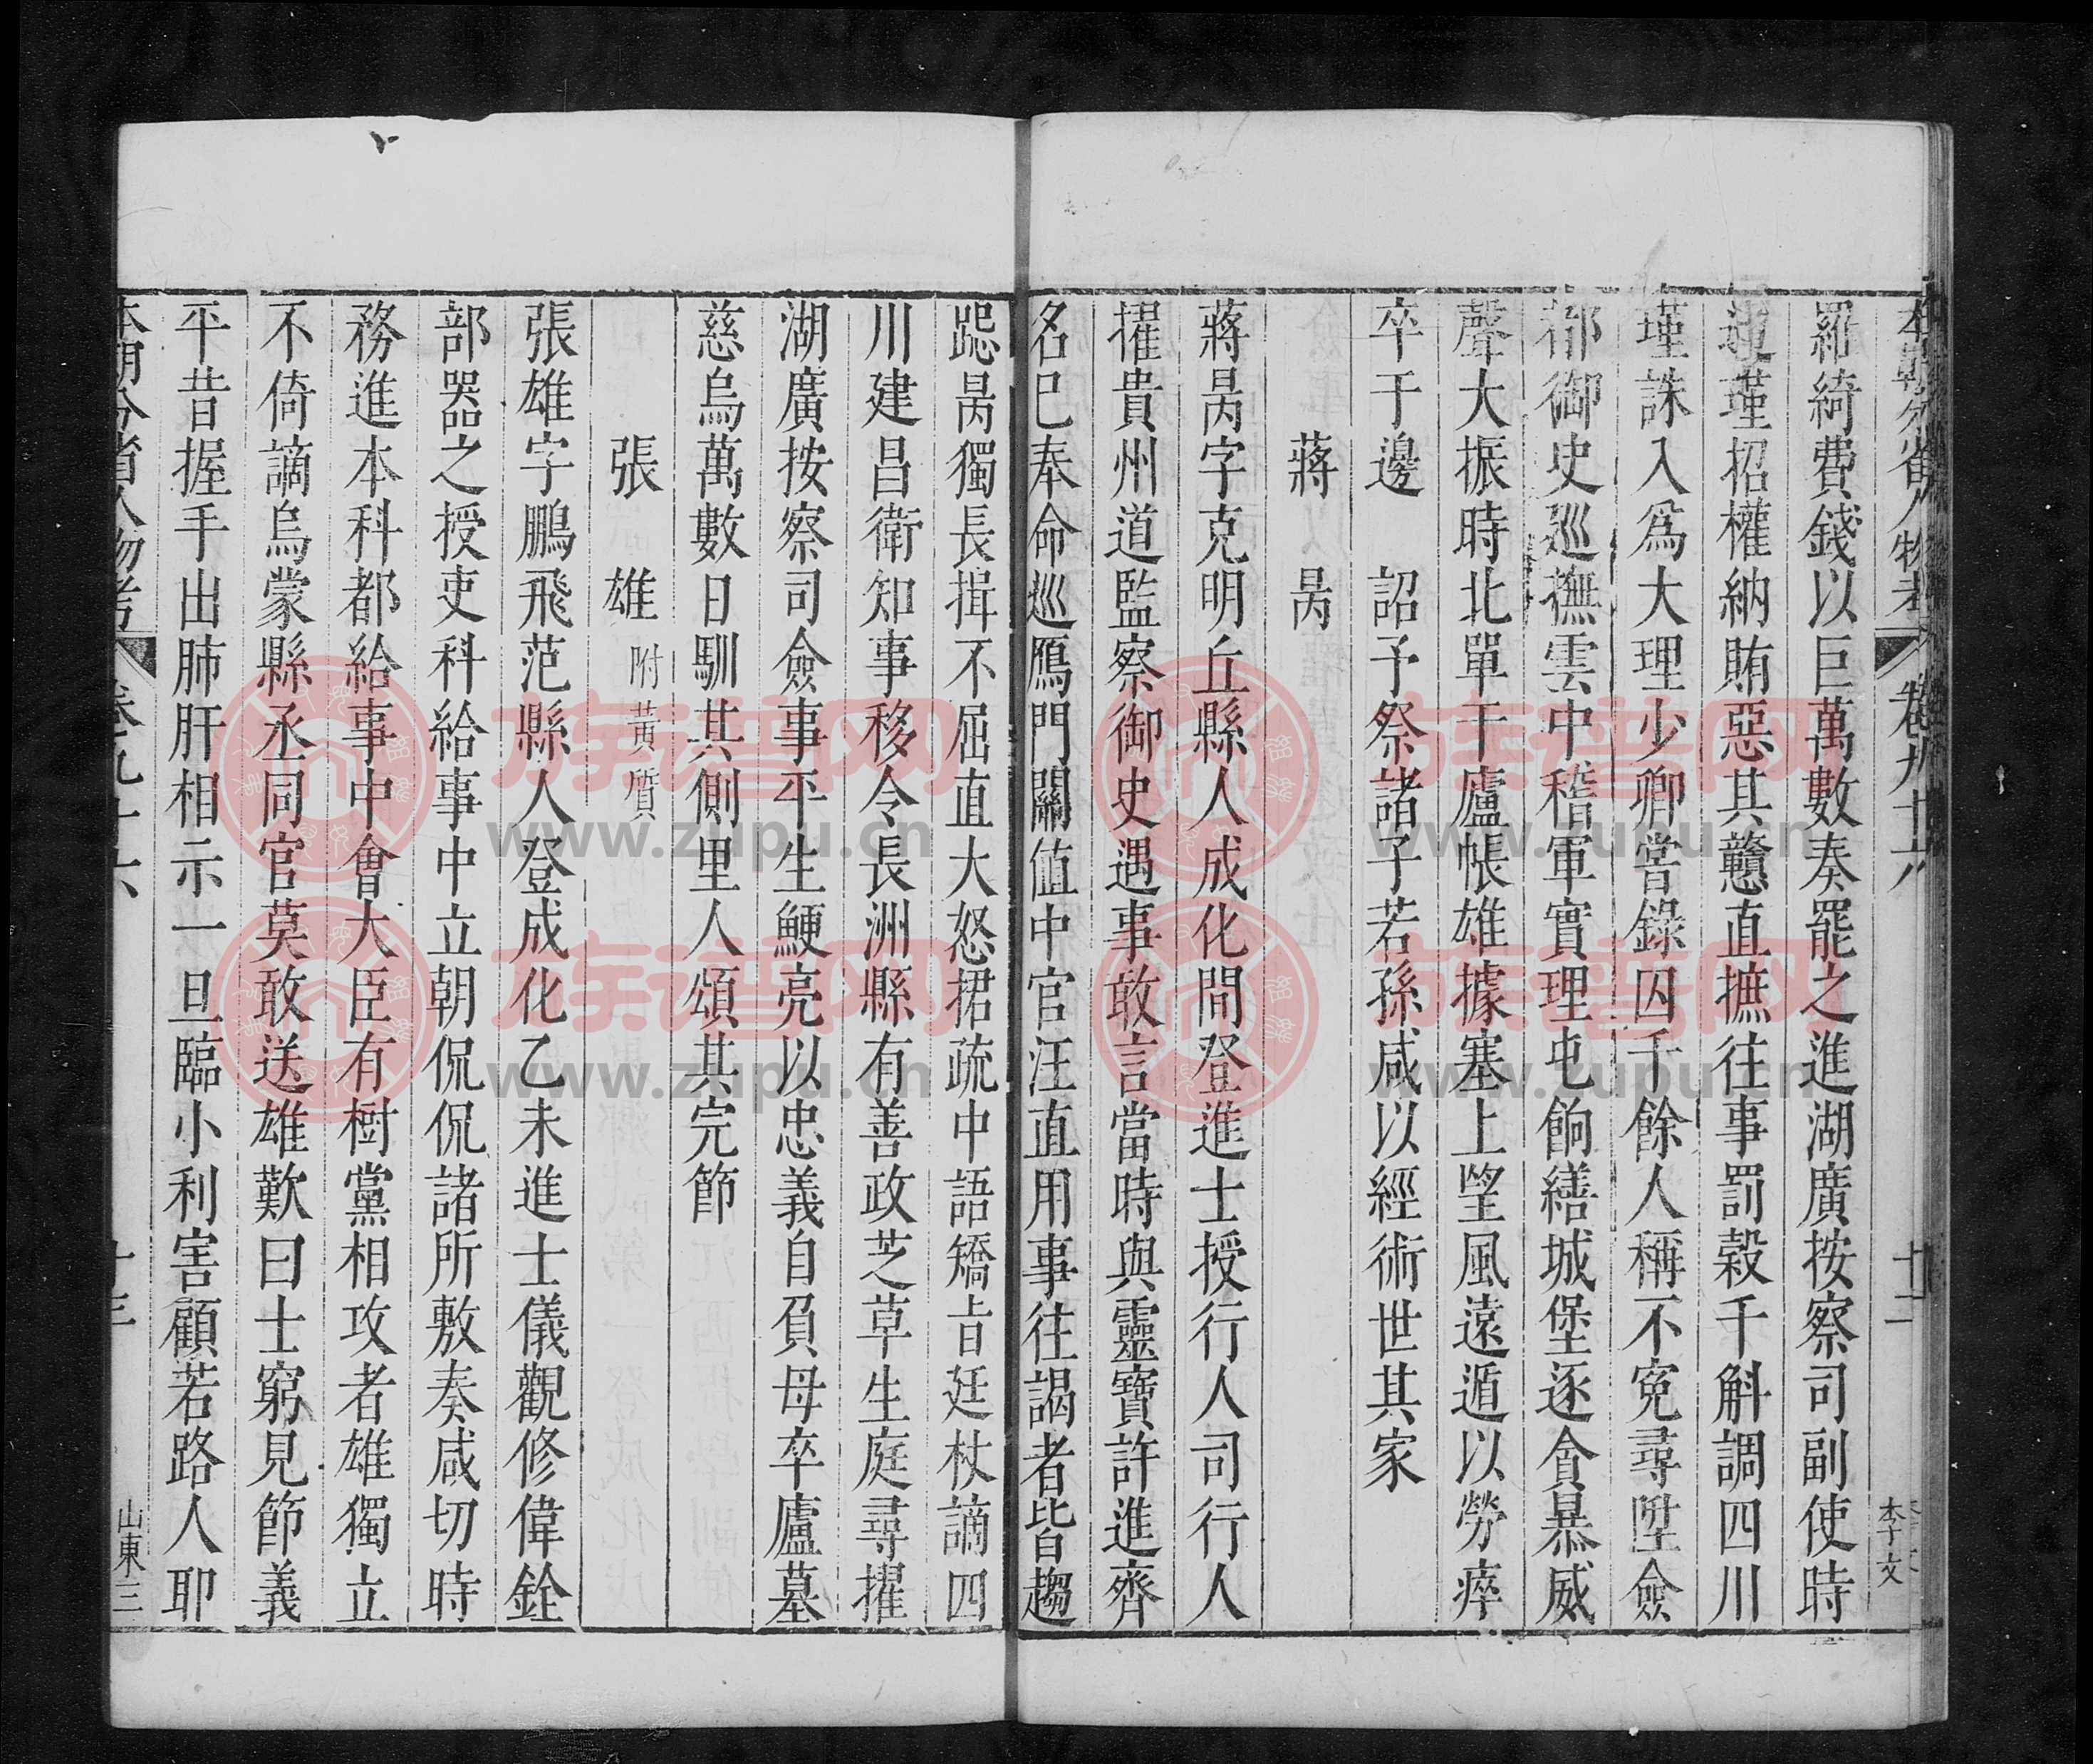 本朝分省人物考 卷九十六 十二 李文
羅綺費錢以巨萬數奏罷之進湖廣按察司副使時
逆瑾招權納賄惡其戇直摭往事罰穀千斛調四川
瑾誅入為大理少卿嘗錄囚千餘人稱不冤尋陞僉
都御史巡撫雲中稽軍實理屯餉繕城堡逐貪暴威
聲大振時北單于廬帳雄據塞上望風遠遁以勞瘁
卒于邊 詔予祭諸子若孫咸以經術世其家
蔣昺
蔣昺字克明丘縣人成化間登進士授行人司行人
擢貴州道監察御史遇事敢言當時與靈寶許進齊
名巳奉命巡鴈門關值中官汪直用事往謁者皆趨
跽昺獨長揖不屈直大怒捃疏中語矯旨廷杖謫四
川建昌衛知事移令長洲縣有善政芝草生庭尋擢
湖廣按察司僉事平生鯁亮以忠義自負母卒廬墓
慈烏萬數日馴其側里人頌其完節
張雄 附黃質
張雄字鵬飛范縣人登成化乙未進士儀觀修偉銓
部器之授吏科給事中立朝侃侃諸所敷奏咸切時
務進本科都給事中會大臣有樹黨相攻者雄獨立
不倚謫烏蒙縣丞同官莫敢送雄歎曰士窮見節義
平昔握手出肺肝相示一旦臨小利害顧若路人耶
本朝分省人物考 卷九十六 十三 山東三
族譜网
www.zupu.cn
族譜网
www.zupu.cn
族譜网
www.zupu.cn
族譜网
www.zupu.cn